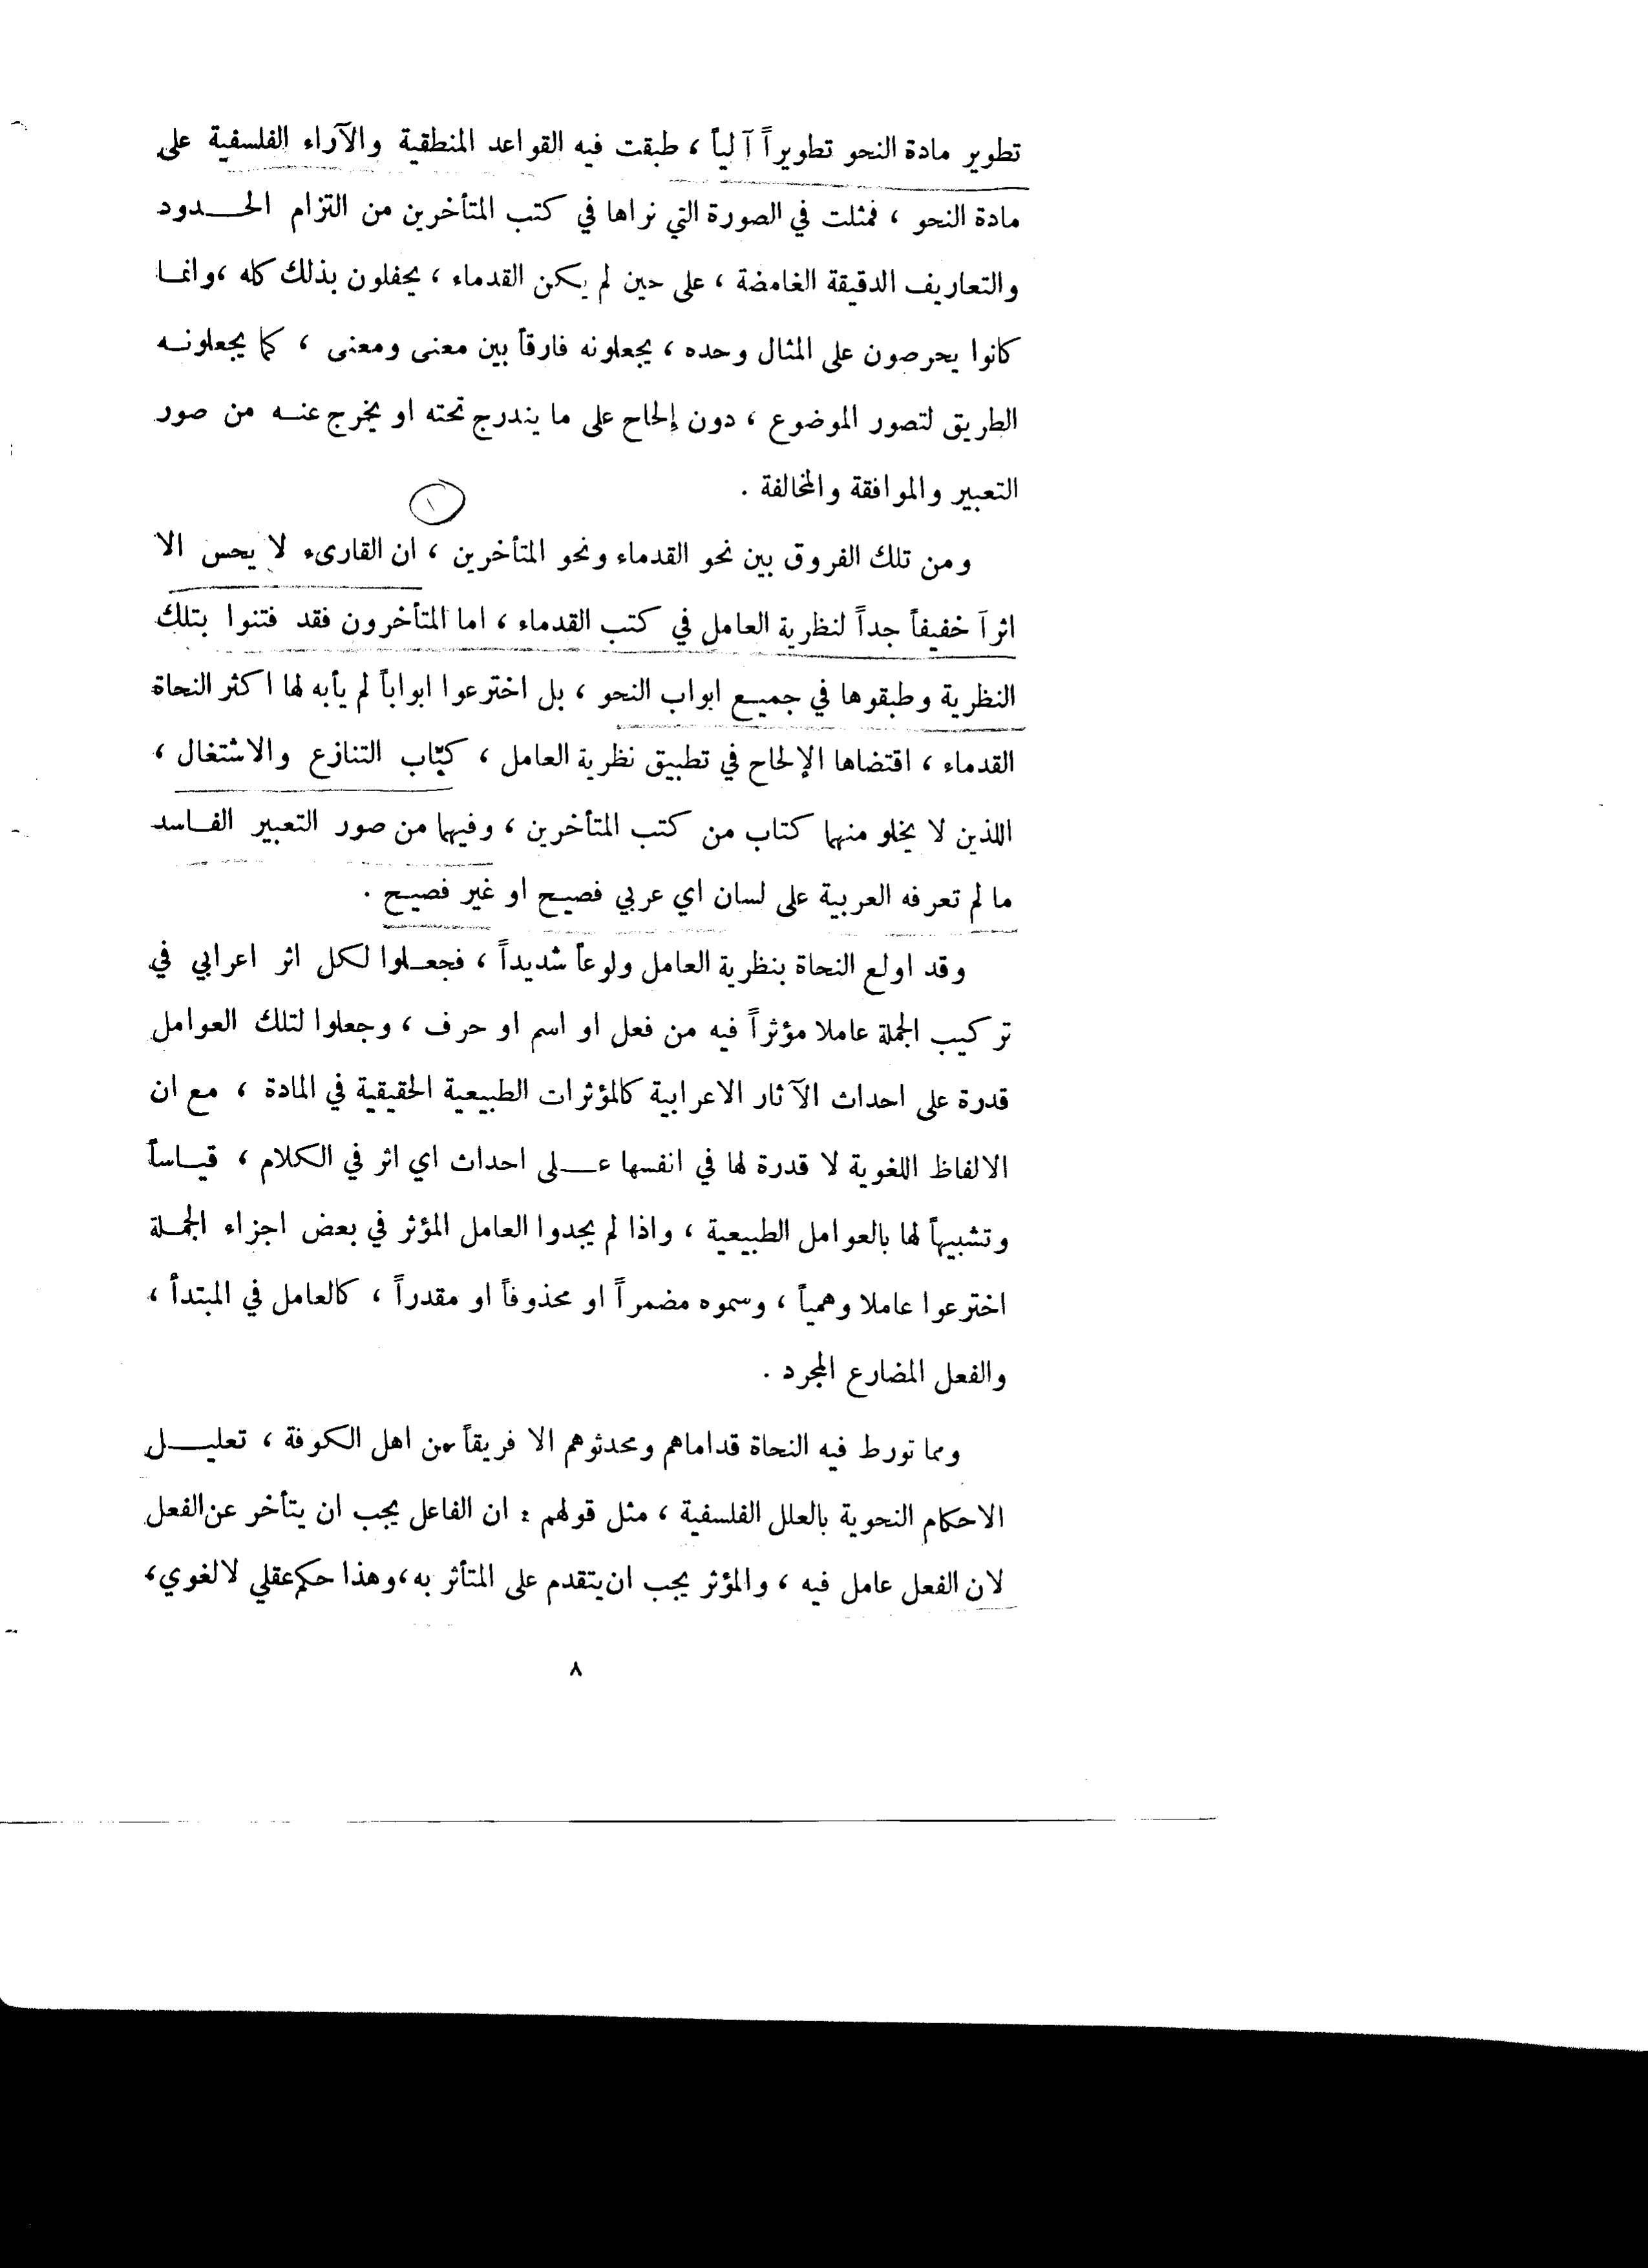 تطوير مادة النحو تطويراً آلياً ، طبقت فيه القواعد المنطقية والآراء الفلسفية على
مادة النحو ، فمثلت في الصورة التي نراها في كتب المتأخرين من التزام الحـدود
والتعاريف الدقيقة الغامضة ، على حين لم يكن القدماء ، يحفلون بذلك كله ،وانمـا
كانوا يحرصون على المثال وحده ، يجعلونه فارقاً بين معنى ومعنى ، كما يجعلونـه
الطريق لتصور الموضوع ، دون إلحاح على ما يندرج تحته او يخرج عنـه من صور
التعبير والموافقة والمخالفة .
١
ومن تلك الفروق بين نحو القدماء ونحو المتأخرين ، ان القارىء لا يحس الا
اثراً خفيفاً جداً لنظرية العامل في كتب القدماء ، اما المتأخرون فقد فتنوا بتلك
النظرية وطبقوها في جميـع ابواب النحو ، بل اخترعوا ابواباً لم يأبه لها اكثر النحاة
القدماء ، اقتضاها الإلحاح في تطبيق نظرية العامل ، كبّاب التنازع والاشتغال ،
اللذين لا يخلو منهما كتاب من كتب المتأخرين ، وفيهما من صور التعبير الفـاسد
ما لم تعرفه العربية على لسان اي عربي فصيـح او غير فصيـح .
وقد اولع النحاة بنظرية العامل ولوعاً شديداً ، فجعـلوا لكل اثر اعرابي في
تركيب الجملة عاملا مؤثراً فيه من فعل او اسم او حرف ، وجعلوا لتلك العوامل
قدرة على احداث الآثار الاعرابية كالمؤثرات الطبيعية الحقيقية في المادة ، مع ان
الالفاظ اللغوية لا قدرة لها في انفسها عـلى احداث اي اثر في الكلام ، قيـاساً
وتشبيهاً لها بالعوامل الطبيعية ، واذا لم يجدوا العامل المؤثر في بعض اجزاء الجمـلة
اخترعوا عاملا وهمياً ، وسموه مضمراً او محذوفاً او مقدراً ، كالعامل في المبتدأ ،
والفعل المضارع المجرد .
ومما تورط فيه النحاة قداماهم ومحدثوهم الا فريقاً من اهل الكوفة ، تعليـل
الاحكام النحوية بالعلل الفلسفية ، مثل قولهم : ان الفاعل يجب ان يتأخر عن الفعل
لان الفعل عامل فيه ، والمؤثر يجب ان يتقدم على المتأثر به ،وهذا حكم عقلي لا لغوي ،
٨